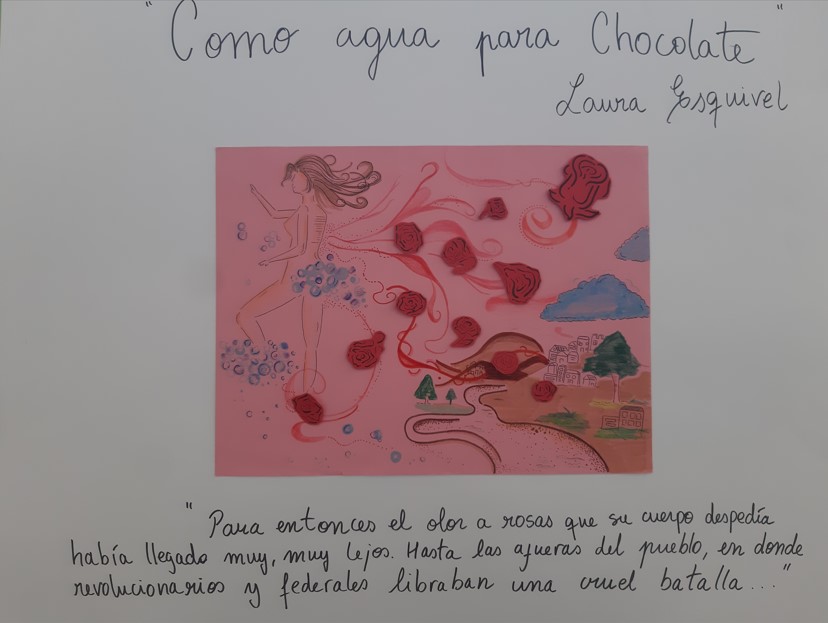 "Como agua para Chocolate"
Laura Esquivel
"Para entonces el olor a rosas que su cuerpo despedía
había llegado muy, muy lejos. Hasta las afueras del pueblo, en donde
revolucionarios y federales libraban una cruel batalla..."